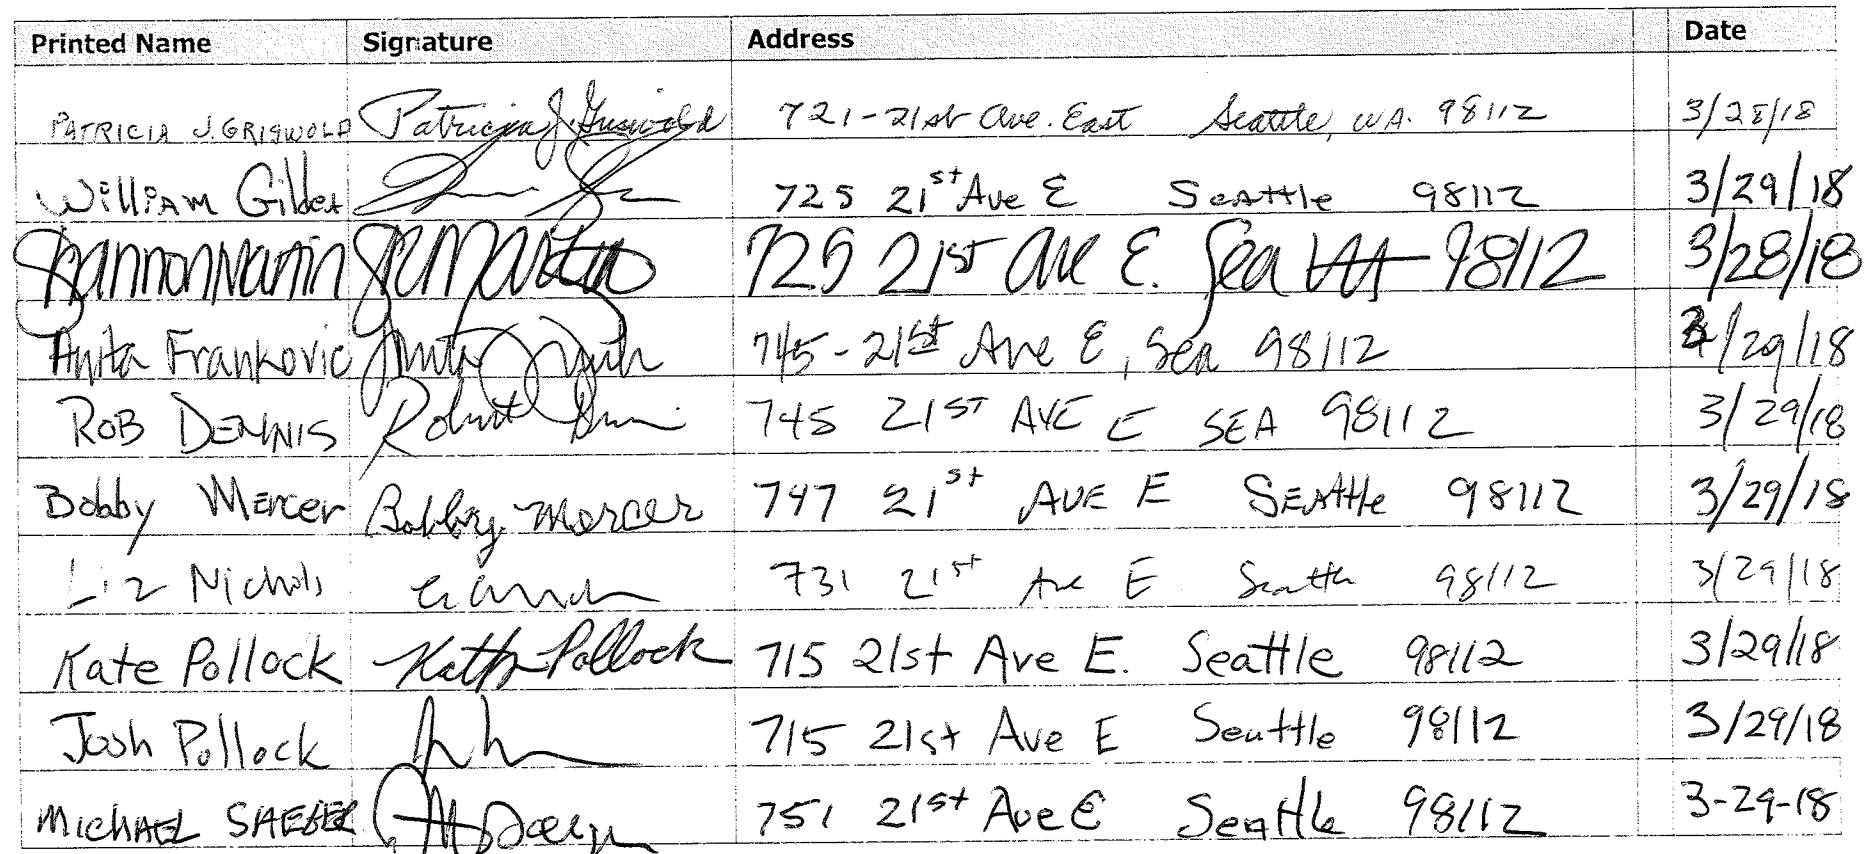 Printed Name Signature Address Date
PATRICIA J. GRISWOLD Patricia J. Griswold 721-21st Ave. East Seattle, WA. 98112 3/28/18
William Gilder 725 21st Ave E Seattle 98112 3/29/18
Shannon Martin 725 21st Ave E. Sea WA 98112 3/28/18
Anita Frankovic Anita 745-21st Ave E, Sea 98112 /29/18
ROB DENNIS Robert Dennis 745 21ST AVE E SEA 98112 3/29/18
Bobby Mercer Bobby Mercer 747 21st AVE E SEAttle 98112 3/29/18
Liz Nichols 731 21st Ave E Seattle 98112 3/29/18
Kate Pollock Kath Pollock 715 21st Ave E. Seattle 98112 3/29/18
Josh Pollock 715 21st Ave E Seattle 98112 3/29/18
MICHAEL 751 21st Ave E Seattle 98112 3-29-18